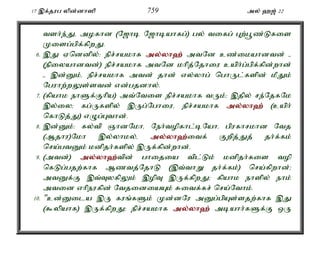 17 இக்தரப லின்னாஸி 759 அல் ஹஜ் 22
வளர்ந்து, அழகான (ஜோடி ஜோடியாகப்) பல் வகைப் புற்பூண்டுகளை
முளைப்பிக்கிறது.
6. இது ஏனெனில்: நிச்சயமாக அல்லாஹ் அவனே உண்மையானவன் -
(நிலையானவன்) நிச்சயமாக அவனே மரித்தோரை உயிர்ப்பிக்கின்றான்
- இன்னும், நிச்சயமாக அவன் தான் எல்லாப் பொருட்களின் மீதும்
பேராற்றலுள்ளவன் என்பதனால்.
7. (கியாம நாளுக்குரிய) அவ்வேளை நிச்சயமாக வரும்; இதில் சந்தேகமே
இல்லை; கப்ருகளில் இருப்போரை, நிச்சயமாக அல்லாஹ் (உயிர்
கொடுத்து) எழுப்புவான்.
8. இன்னும்: கல்வி ஞானமோ, நேர்வழிகாட்டியோ, பிரகாசமான வேத
(ஆதார)மோ இல்லாமல், அல்லாஹ்வைக் குறித்துத் தர்க்கம்
செய்பவனும் மனிதர்களில் இருக்கின்றான்.
9. (அவன்) அல்லாஹ்வின் பாதையை விட்டும் மனிதர்களை வழி
கெடுப்பதற்காக ஆணவத்தோடு (இவ்வாறு தர்க்கம்) செய்கிறான்;
அவனுக்கு இவ்வுலகிலும் இழிவு இருக்கிறது; கியாம நாளில் நாம்
அவனை எரிநரகின் வேதனையையும் சுவைக்கச் செய்வோம்.
10. "உன்னுடைய இரு கரங்களும் முன்னரே அனுப்பியுள்ளதற்காக இது
(கூலியாக) இருக்கிறது; நிச்சயமாக அல்லாஹ் அடியார்களுக்கு ஒரு